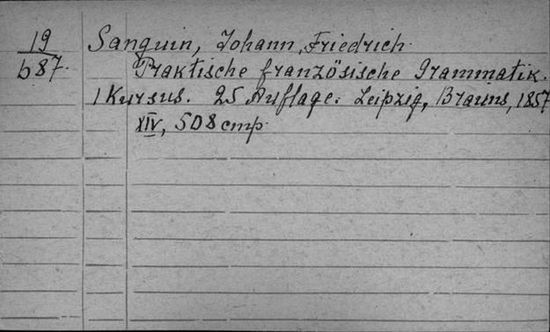 19
687.
Sanguin, Johann, Friedrich.
Praktische französische Grammatik.
1 Kursus. 25 Auflage. Leipzig, Brauns, 1857
XIV, 508 cmp.